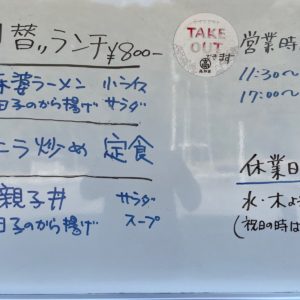 替ランチ ¥800-
婆ラーメン 小ライス
日子のから揚げ サラダ
ニラ炒め 定食
親子丼 サラダ
日子のから揚げ スープ
TAKE
OUT
できます
営業時
11:30〜
17:00〜
休業日
水・木よ
(祝日の時は